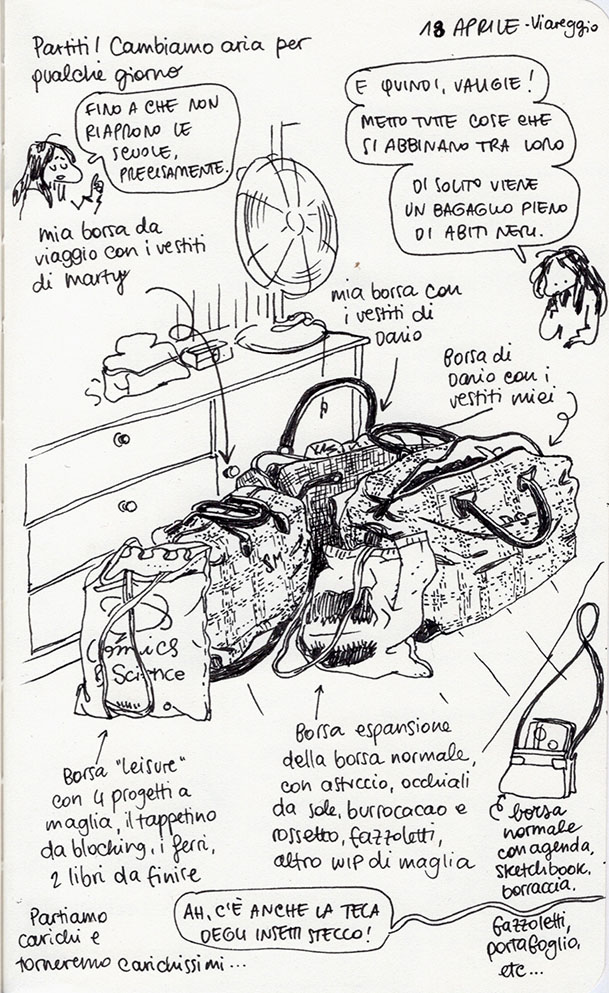 18 APRILE - Viareggio
Partiti! Cambiamo aria per
qualche giorno
FINO A CHE NON
RIAPRONO LE
SCUOLE,
PRECISAMENTE.
E QUINDI, VALIGIE!
METTO TUTTE COSE CHE
SI ABBINANO TRA LORO
DI SOLITO VIENE
UN BAGAGLIO PIENO
DI ABITI NERI.
mia borsa da
viaggio con i vestiti
di marty
mia borsa con
i vestiti di
Dario
Borsa di
Dario con i
vestiti miei
Comics
& Science
Borsa "leisure"
con 4 progetti a
maglia, il tappetino
da blocking, i ferri,
2 libri da finire
Borsa espansione
della borsa normale,
con astuccio, occhiali
da sole, burrocacao e
rossetto, fazzoletti,
altro WIP di maglia
borsa
normale
con agenda,
sketchbook,
borraccia,
fazzoletti,
portafoglio,
etc...
Partiamo
carichi e
torneremo carichissimi...
AH, C'È ANCHE LA TECA
DEGLI INSETTI STECCO!